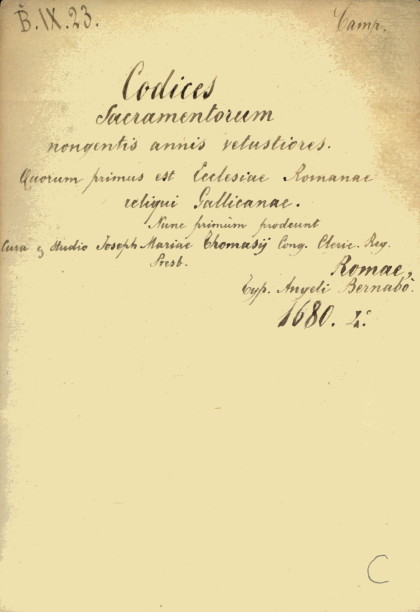 B̆.IX.23.
Camp.
Codices
Sacramentorum
nongentis annis vetustiores.
Quorum primus est Ecclesiae Romanae
reliqui Gallicanae.
Nunc primùm prodeunt
Cura & studio Joseph Mariae Thomasij Cong. Cleric. Reg.
Presb.
Romae,
Typ. Angeli Bernabò.
1680. 4.º
C